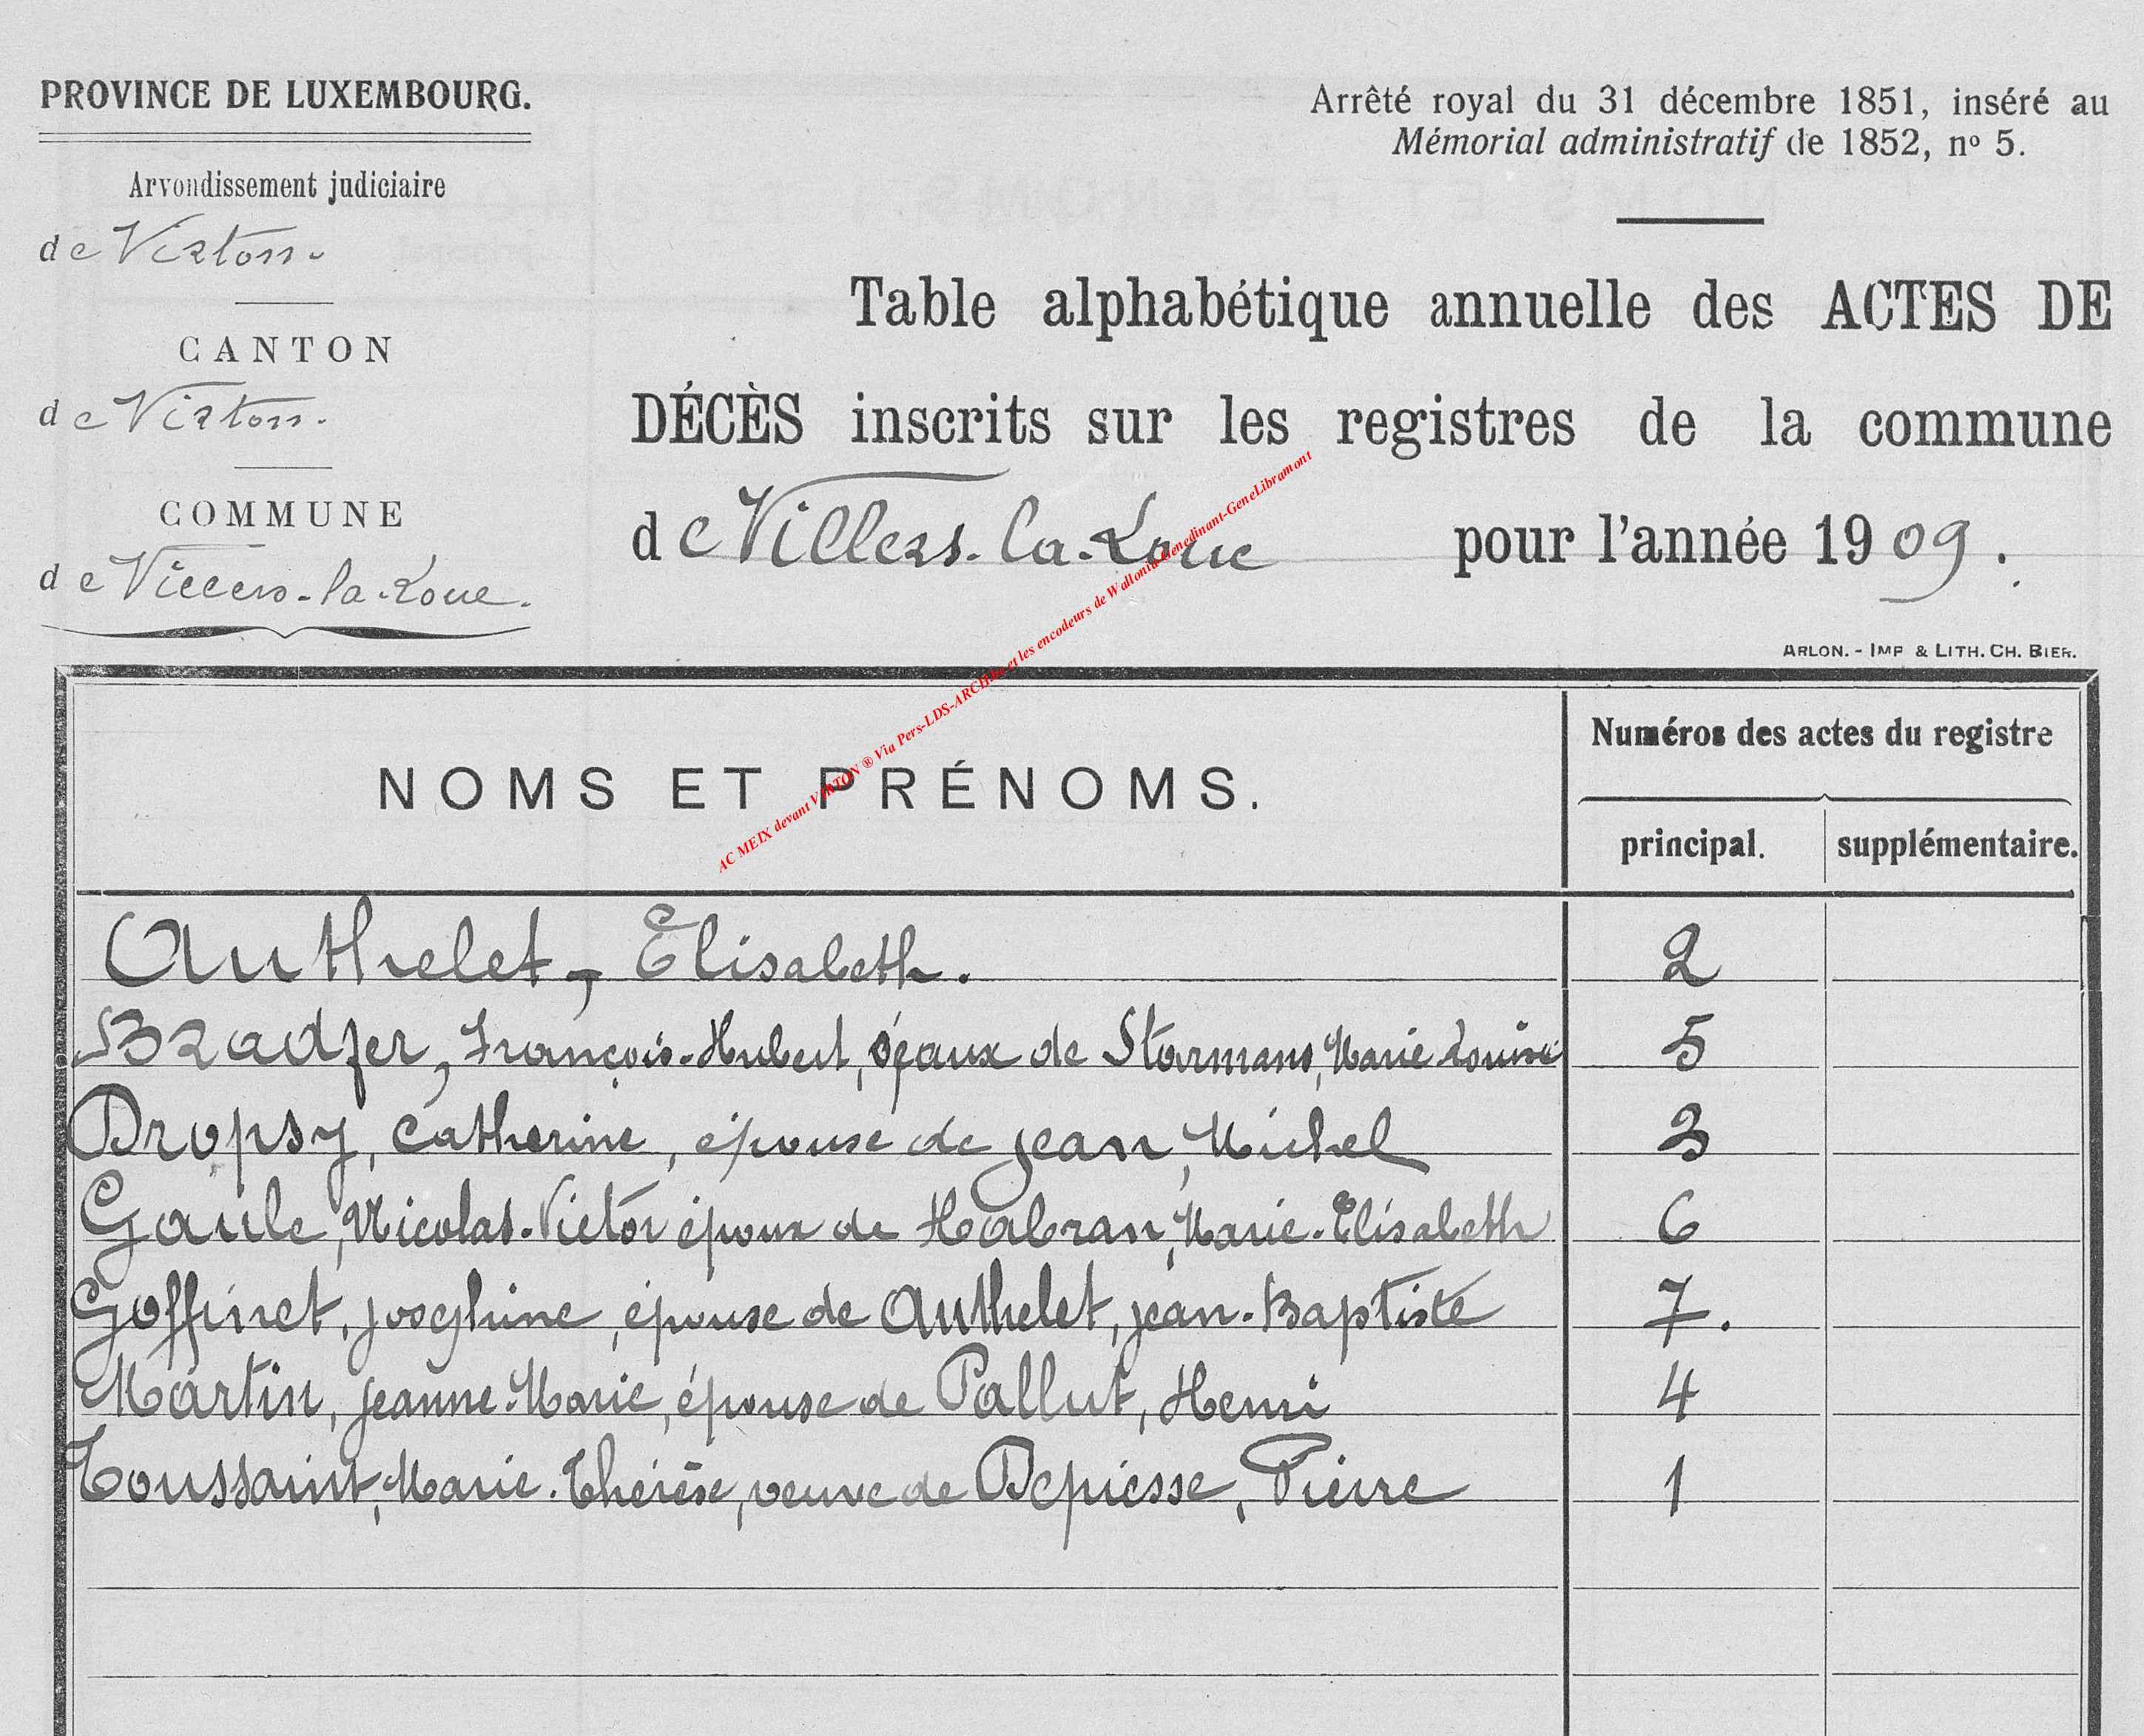 PROVINCE DE LUXEMBOURG.
Arrondissement judiciaire
de Virton.
CANTON
de Virton.
COMMUNE
de Villers-la-Loue.
Arrêté royal du 31 décembre 1851, inséré au
Mémorial administratif de 1852, nº 5.
Table alphabétique annuelle des ACTES DE
DÉCÈS inscrits sur les registres de la commune
de Villers-la-Loue pour l'année 1909.
ARLON. - IMP & LITH. CH. BIER.
AC MEIX devant VIRTON ® Via Pers-LDS-ARCH et les encodeurs de Wallonia-Genedinant-GeneLibramont
NOMS ET PRÉNOMS.
Numéros des actes du registre
principal. supplémentaire.
Authelet, Elisabeth. 2
Bradfer, François-Hubert, époux de Starmans, Marie Louise 5
Dropsy, Catherine, épouse de Jean, Michel 3
Gaule, Nicolas-Victor époux de Habran, Marie-Elisabeth 6
Goffinet, Joséphine, épouse de Authelet, Jean-Baptiste 7.
Martin, Jeanne-Marie, épouse de Pallut, Henri 4
Toussaint, Marie-Thérèse, veuve de Depiesse, Pierre 1